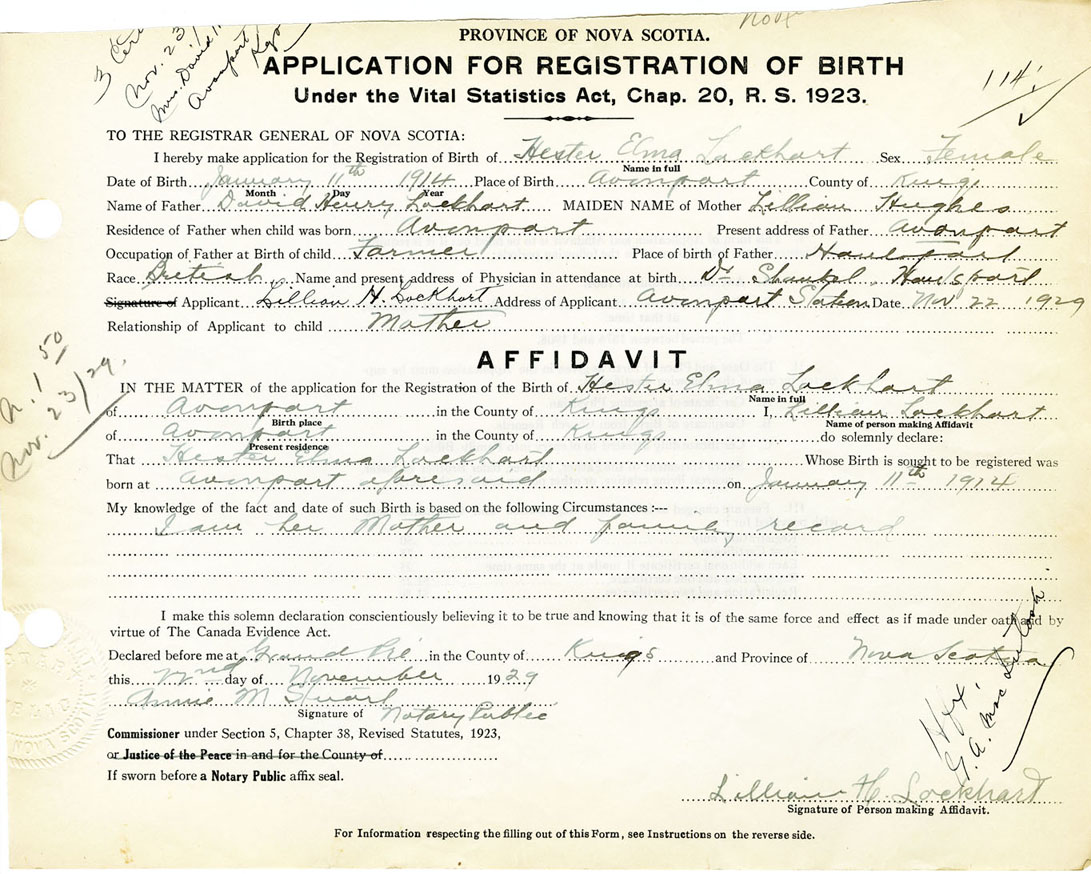 3
Nov. 23
Mrs. David
Avonport
Nova
PROVINCE OF NOVA SCOTIA.
APPLICATION FOR REGISTRATION OF BIRTH
Under the Vital Statistics Act, Chap. 20, R. S. 1923.
114
TO THE REGISTRAR GENERAL OF NOVA SCOTIA:
I hereby make application for the Registration of Birth of Hester Elma Lockhart Sex Female
Name in full
Date of Birth January 11th 1914 Place of Birth Avonport County of Kings
Month Day Year
Name of Father David Henry Lockhart MAIDEN NAME of Mother Lillian Hughes
Residence of Father when child was born Avonport Present address of Father Avonport
Occupation of Father at Birth of child Farmer Place of birth of Father Hantsport
Race British Name and present address of Physician in attendance at birth Dr Shankel, Hantsport
Signature of Applicant Lillian H. Lockhart Address of Applicant Avonport Station Date Nov 22 1929
Relationship of Applicant to child Mother
1 50
Nov. 23/29.
AFFIDAVIT
IN THE MATTER of the application for the Registration of the Birth of Hester Elma Lockhart
Name in full
of Avonport in the County of Kings I, Lillian Lockhart
Birth place Name of person making Affidavit
of Avonport in the County of Kings do solemnly declare:
Present residence
That Hester Elma Lockhart Whose Birth is sought to be registered was
born at Avonport aforesaid on January 11th 1914
My knowledge of the fact and date of such Birth is based on the following Circumstances :---
I am her Mother and family record
I make this solemn declaration conscientiously believing it to be true and knowing that it is of the same force and effect as if made under oath and by
virtue of The Canada Evidence Act.
Declared before me at Grand Pré in the County of Kings and Province of Nova Scotia
this 22nd day of November 1929
Annie M Stuart
Signature of Notary Public
Commissioner under Section 5, Chapter 38, Revised Statutes, 1923,
or Justice of the Peace in and for the County of
If sworn before a Notary Public affix seal.
Hfx.
G. A. MacIntosh
Lillian H. Lockhart
Signature of Person making Affidavit.
For Information respecting the filling out of this Form, see Instructions on the reverse side.